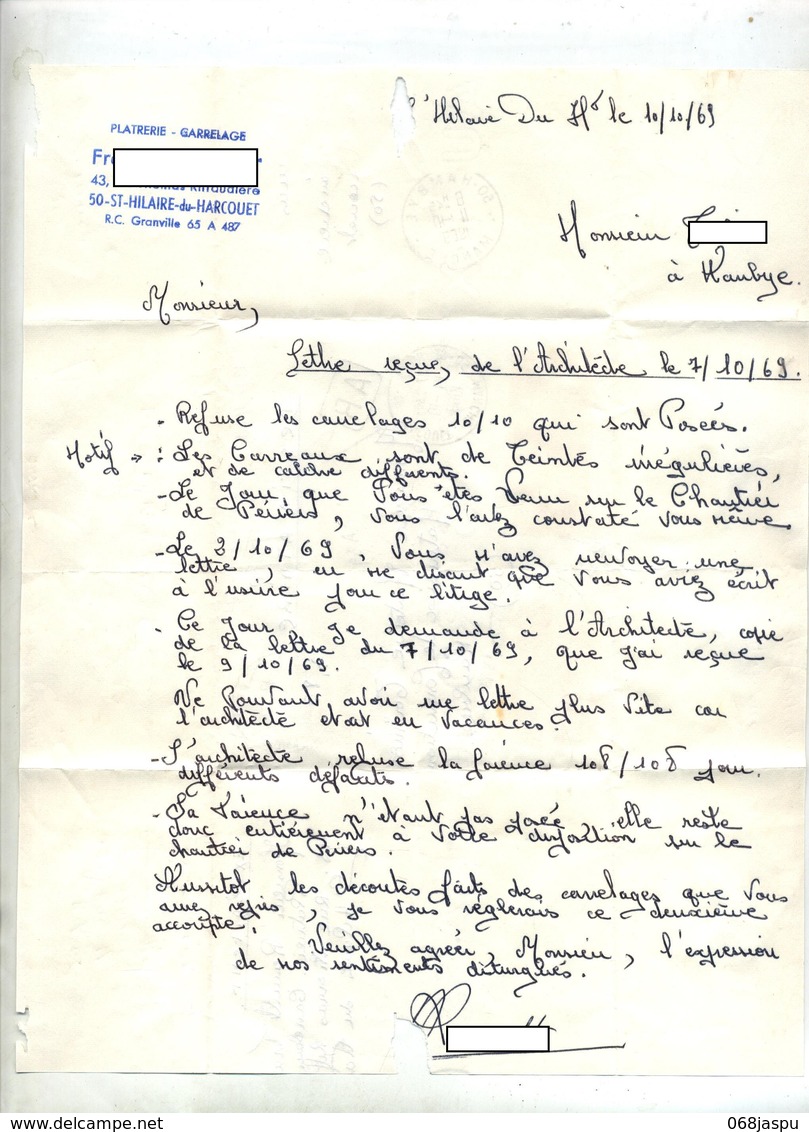 PLATRERIE - CARRELAGE
Fr
43, Thomas Riffaudière
50-ST-HILAIRE-du-HARCOUET
R.C. Granville 65 A 487
t' Hilaire Du Ht le 10/10/69
Monsieur
à Hambye.
Monsieur,
Lettre reçue, de l'Architècte le 7/10/69.
- Refuse les carrelages 10/10 qui sont Posées.
Motif → : Les Carreaux sont de Teintes irrégulières,
et de calibre différents.
- Le Jour, que Vous êtes Venu sur le Chantier
de Périers, vous l'avez constaté vous même.
- Le 2/10/69, Vous m'avez renvoyer une
lettre, en me disant que vous aviez écrit
à l'usine pour ce litige.
- Ce Jour je demande à l'Architecte, copie
de la lettre du 7/10/69, que j'ai reçue
le 9/10/69.
Ne Pouvant avoir une lettre plus Vite car
l'architècte etait en vacances.
- L'architecte refuse la faïence 108/108 pour
différents défauts.
- La Faïence n'étant pas posée, elle reste
donc entièrement à votre disposition sur le
chantier de Périers.
Aussitot les décomtes faits des carrelages que vous
avez repris, je vous règlerais ce deuxième
accompte.
Veuillez agréer, Monsieur, l'expression
de nos sentiments distingués.
068jaspu